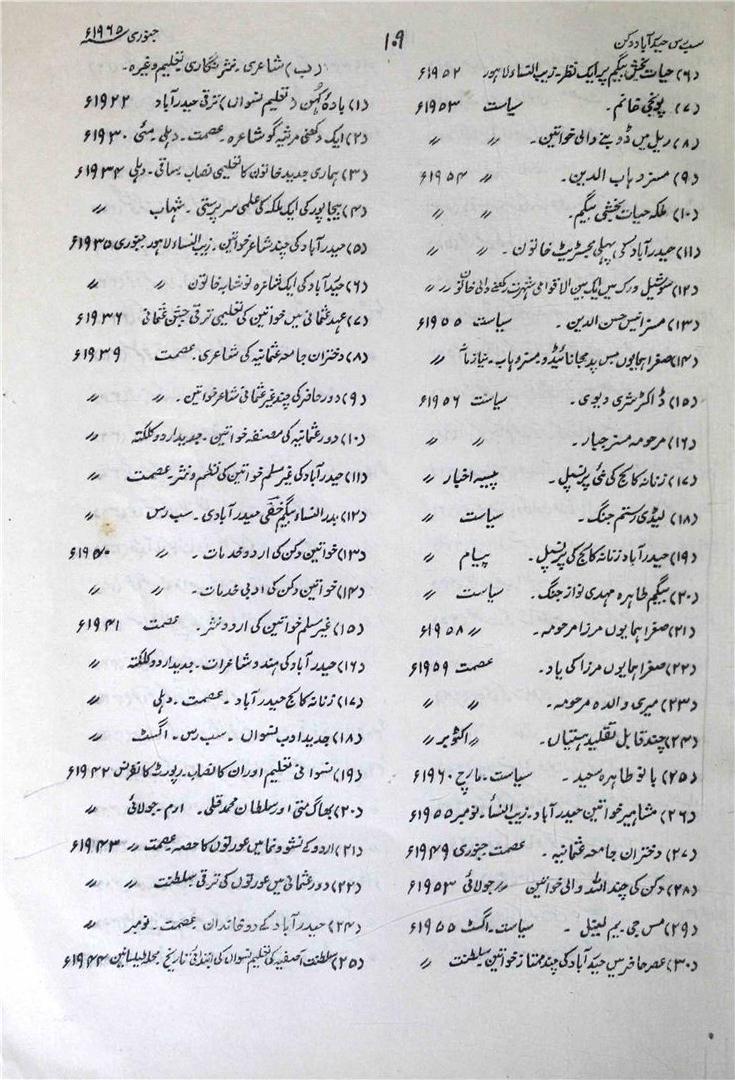 سب رس حیدرآباد دکن
۱۰۹
جنوری ۱۹۶۵ء
(۶) حیات بخشی بیگم پر ایک نظر۔ زیب النساء لاہور ۱۹۵۲ء
(۷) پونجی خانم۔ سیاست ۱۹۵۳ء
(۸) ریل میں ڈوبنے والی خواتین۔ 〃 〃
(۹) مسز وہاب الدین۔ 〃 ۱۹۵۴ء
(۱۰) ملکہ حیات بخشی بیگم۔ 〃 〃
(۱۱) حیدرآباد کی پہلی مجسٹریٹ خاتون۔ 〃 〃
(۱۲) سوشیل ورک میں ایک بین الاقوامی شہرت رکھنے والی خاتون 〃 〃
(۱۳) مسز انیس حسن الدین۔ سیاست ۱۹۵۵ء
(۱۴) صغرا ہمایوں مس پدمجا نائیڈو و مسز وہاب۔ 〃
(۱۵) ڈاکٹر شری دیوی۔ سیاست ۱۹۵۶ء
(۱۶) مرحومہ مسز جبار۔ 〃 〃
(۱۷) زنانہ کالج کی نئی پرنسپل۔ پیسہ اخبار 〃
(۱۸) لیڈی رستم جنگ۔ سیاست 〃
(۱۹) حیدرآباد زنانہ کالج کی پرنسپل۔ پیام 〃
(۲۰) بیگم طاہرہ مہدی نواز جنگ۔ سیاست 〃
(۲۱) صغرا ہمایوں مرزا مرحومہ۔ 〃 ۱۹۵۸ء
(۲۲) صغرا ہمایوں مرزا کی یاد۔ عصمت ۱۹۵۹ء
(۲۳) میری والدہ مرحومہ۔ 〃 〃
(۲۴) چند قابل تقلید ہستیاں۔ 〃 اکتوبر 〃
(۲۵) بانو طاہرہ سعید۔ سیاست۔ مارچ ۱۹۶۰ء
(۲۶) مشاہیر خواتین حیدرآباد۔ زیب النساء۔ نومبر ۱۹۵۵ء
(۲۷) دختران جامعہ عثمانیہ۔ عصمت جنوری ۱۹۴۹ء
(۲۸) دکن کی چند اللہ والی خواتین 〃 جولائی ۱۹۵۳ء
(۲۹) مس جی۔ بیم لینیل۔ سیاست۔ اگسٹ ۱۹۵۵ء
(۳۰) عصر حاضر میں حیدرآباد کی چند ممتاز خواتین۔ سلطنت 〃
(ب) شاعری۔ نثر نگاری تعلیم وغیرہ۔
(۱) بادۂ کہن (تعلیم نسواں) ترقی حیدرآباد ۱۹۲۲ء
(۲) ایک دکھنی مرثیہ گو شاعرہ۔ عصمت۔ دہلی۔ مئی ۱۹۳۰ء
(۳) ہماری جدید خاتون کا تعلیمی نصاب۔ ساقی۔ دہلی ۱۹۳۴ء
(۴) بیجاپور کی ایک ملکہ کی علمی سرپرستی۔ شہاب 〃
(۵) حیدرآباد کی چند شاعر خواتین۔ زیب النساء لاہور جنوری ۱۹۳۵ء
(۶) حیدرآباد کی ایک شاعرہ نوشابہ خاتون 〃 〃
(۷) عہد عثمانی میں خواتین کی تعلیمی ترقی جشن عثمانی ۱۹۳۶ء
(۸) دختران جامعہ عثمانیہ کی شاعری۔ عصمت ۱۹۳۹ء
(۹) دور حاضر کی چند غیر عثمانی شاعر خواتین۔ 〃 〃
(۱۰) دور عثمانیہ کی مصنفہ خواتین۔ جدید اردو کلکتہ 〃
(۱۱) حیدرآباد کی غیر مسلم خواتین کی نظم و نثر۔ عصمت 〃
(۱۲) بدر النساء بیگم خفی حیدرآبادی۔ سب رس 〃
(۱۳) خواتین دکن کی اردو خدمات۔ 〃 ۱۹۴۰ء
(۱۴) خواتین دکن کی ادبی خدمات۔ 〃 〃
(۱۵) غیر مسلم خواتین کی اردو نثر۔ عصمت ۱۹۴۱ء
(۱۶) حیدرآباد کی ہندو شاعرات۔ جدید اردو کلکتہ 〃
(۱۷) زنانہ کالج حیدرآباد۔ عصمت۔ دہلی 〃
(۱۸) جدید ادب نسواں۔ سب رس۔ اگسٹ 〃
(۱۹) نسوانی تعلیم اور ان کا نصاب۔ رپورٹ کانفرنس ۱۹۴۲ء
(۲۰) بھاگ متی اور سلطان محمد قلی۔ ارم۔ جولائی 〃
(۲۱) اردو کے نشوونما میں عورتوں کا حصہ۔ عصمت 〃 ۱۹۴۳ء
(۲۲) دور عثمانی میں عورتوں کی ترقی۔ سلطنت 〃 〃
(۲۴) حیدرآباد کے دو خاندان عصمت۔ نومبر 〃
(۲۵) سلطنت آصفیہ کی تعلیم نسواں کی ابتدائی تاریخ مجلہ طیلسانین ۱۹۴۴ء